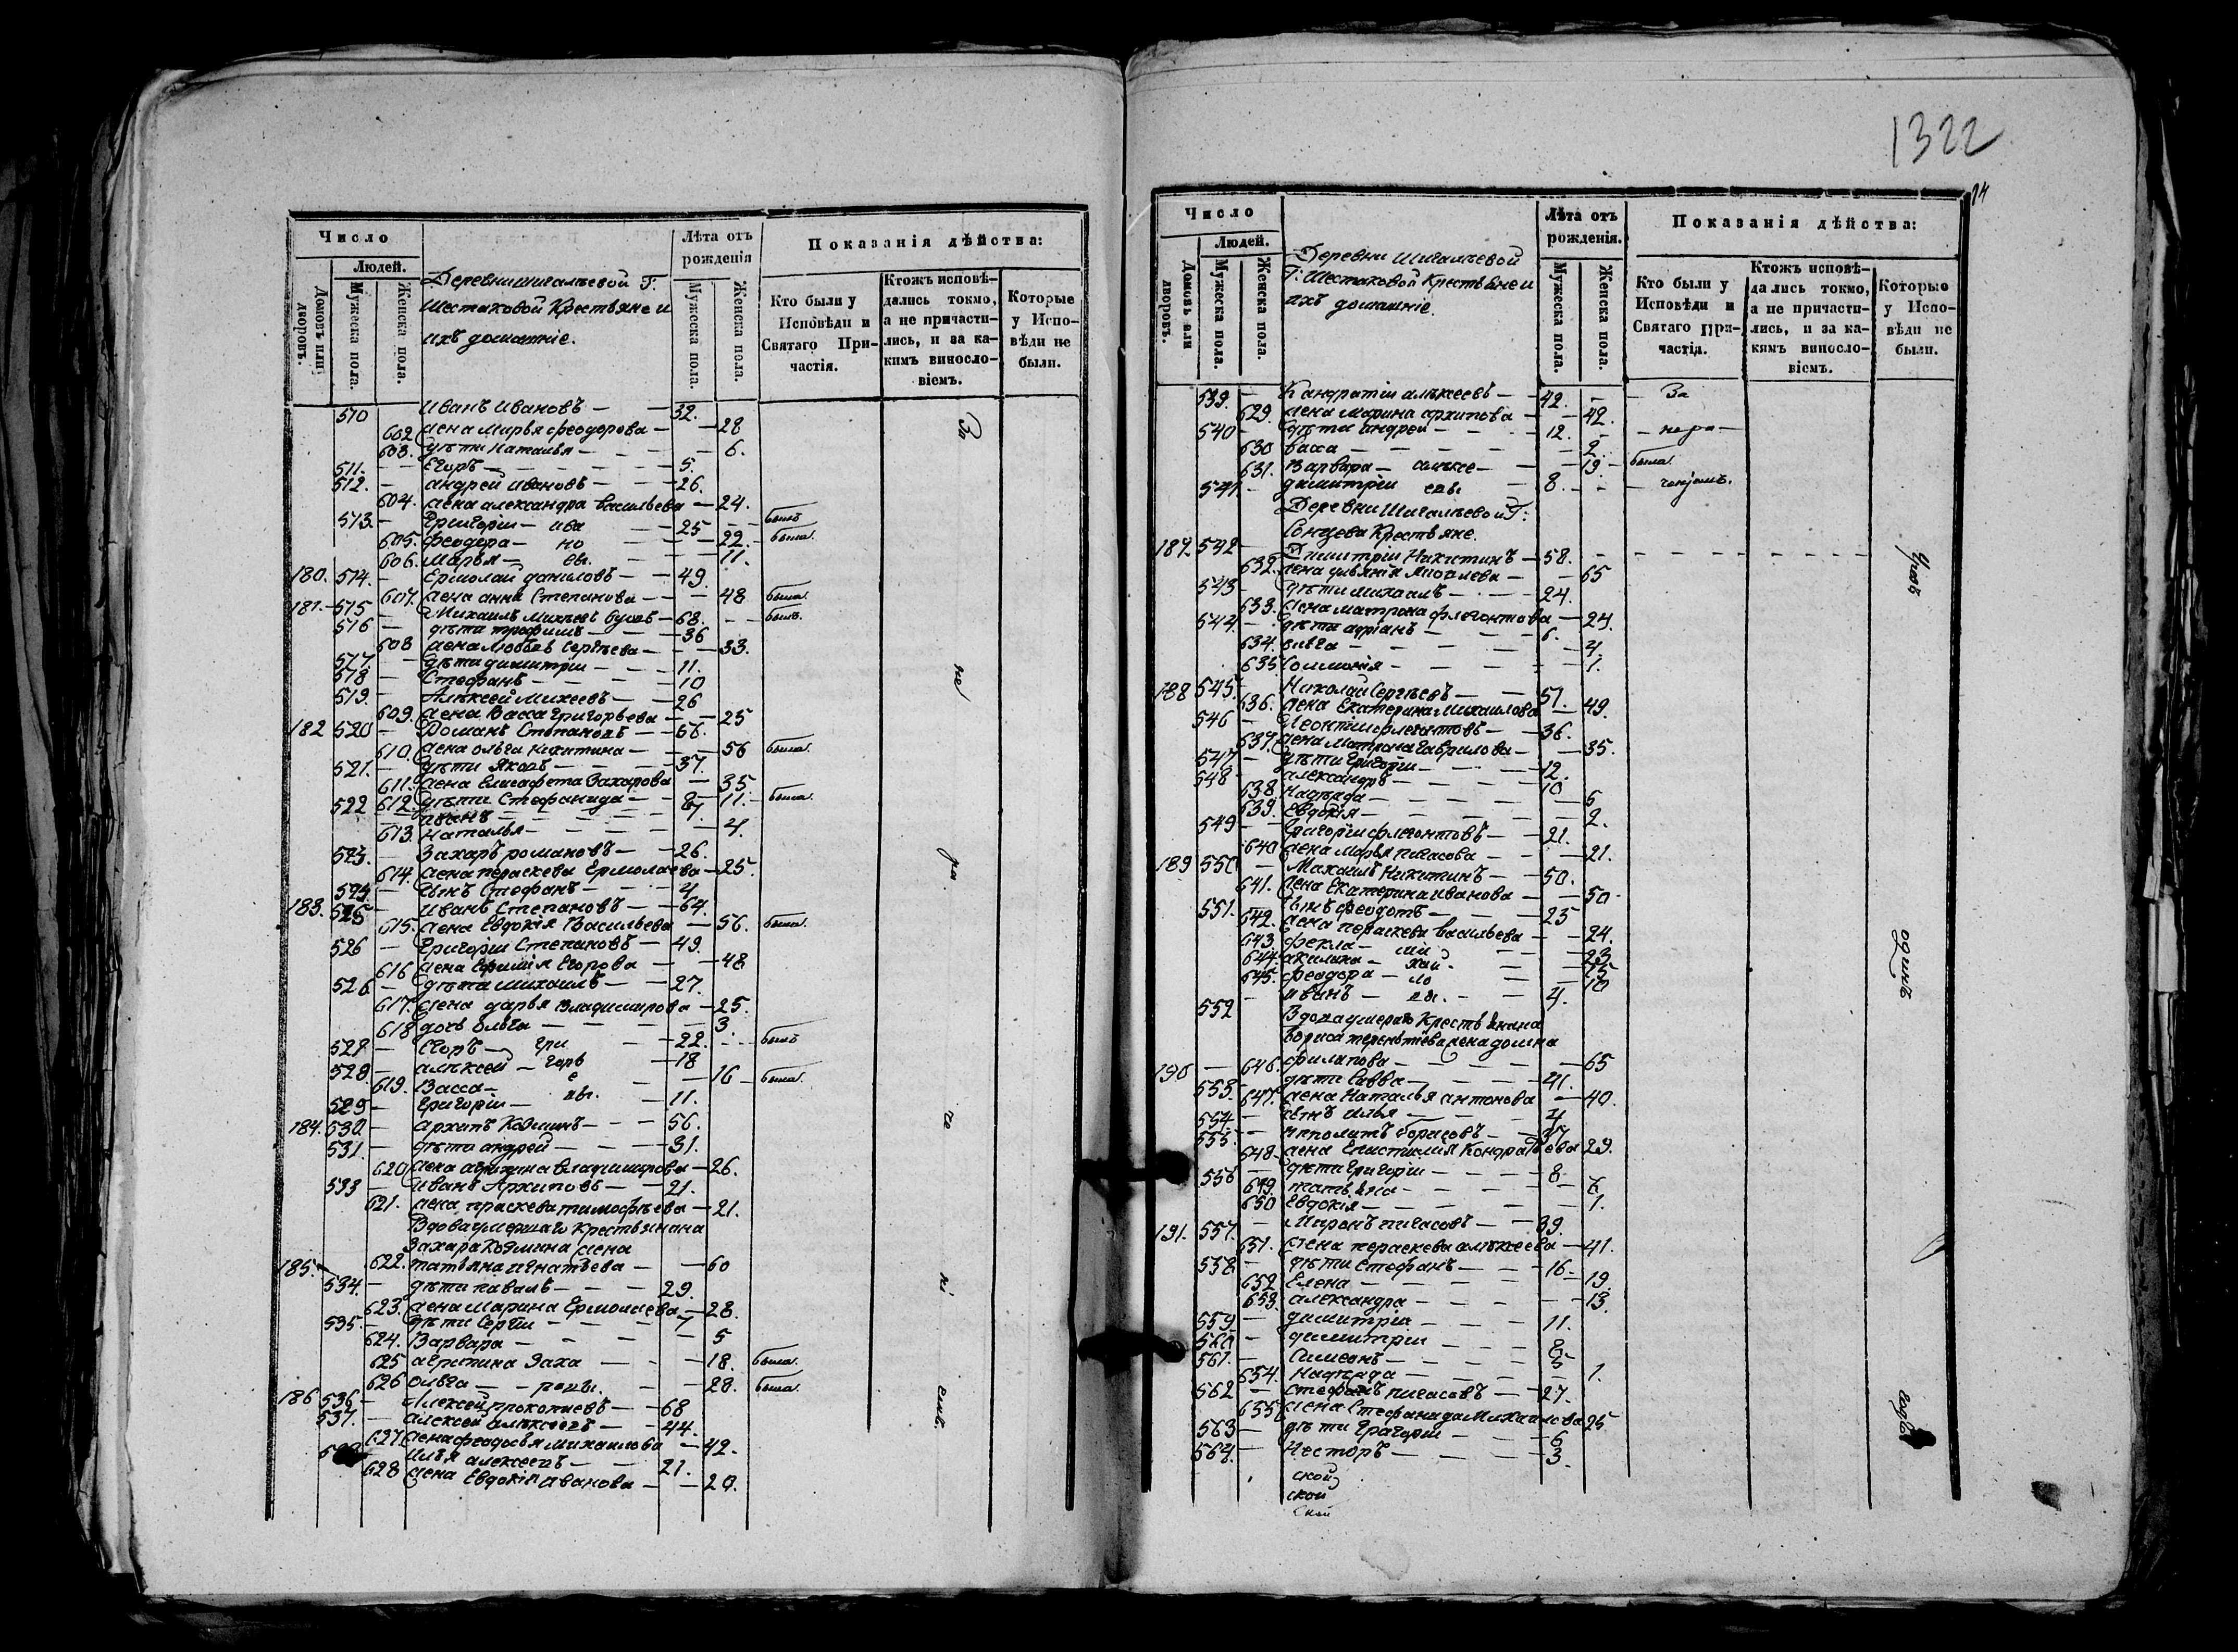 1322
14
Число
Людей.
Домовъ или дворовъ.
Мужеска пола.
Женска пола.
Деревни Шигалѣевой Г:
Шестаковой Крестьяне и
ихъ домашніе.
Лѣта отъ рожденія
Мужеска пола.
Женска пола.
Показанія дѣйства:
Кто были у Исповѣди и Святаго Причастія.
Ктожъ исповѣдались токмо, а не причастились, и за какимъ винословіемъ.
Которые у Исповѣди не были.
510 Иванъ Ивановъ — 32.
602 жена Марья Феодорова — 28
603. дѣти Наталья — 6.
511. Егоръ — 5.
512. Андрей Ивановъ — 26.
604. жена Александра Васильева — 24.
513. Григоріи — ива — 25 — былъ
605. Феодора — но — 22. — была.
606. Марья — вы. — 11.
180. 514. Ермолай Даниловъ — 49.
607. жена Анна Степанова — 48 была.
181. 515 Михаилъ Михѣевъ — 68. — былъ.
516 дѣти Трофимъ — 36
608 жена Любовь Сергѣева — 33.
517. дѣти Димитріи — 11.
518 Стефанъ — 10
519. Алѣксѣй Михеевъ — 26
609. жена Васса Григорьева — 25
182 520 Романъ Степановъ — 66.
610. жена Ольга Никитина — 56 была.
521. дѣти Яковъ — 37.
611. жена Елисафета Захарова — 35
612. дѣти Стефанида — 11. — была.
522 Иванъ — 7.
613. Наталья — 4.
523. Захаръ Романовъ — 26.
614. жена Параскева Ермолаева — 25.
524. сынъ Стефанъ — 4
183. 525 Иванъ Степановъ — 64.
615. жена Евдокія Васильева — 56. была.
526 Григоріи Степановъ — 49.
616 жена Ефимія Егорова — 48
526. дѣти Михаилъ — 27.
617. жена Дарья Владимирова — 25.
618 дочь Ольга — 3.
527. Егоръ — гри — 22. — былъ
528. Алѣксей — горь — 18
619. Васса — е — 16 — была.
529 Григоріи — вы. — 11.
184. 530 Архипъ Козминъ — 56.
531. дѣти Андрей — 31.
620 жена Агрипина Владимирова — 26.
533 Иванъ Архиповъ — 21.
621. жена Праскева Тимофѣева — 21.
Вдова умершаго Крестьянина
Захара Козмина жена
185. 622. Татьяна Игнатьева — 60
534. дѣти Павалъ — 29.
623. жена Марина Ермолаева — 28.
535. дѣти Сергіи — 7
624. Варвара — 5
625 Агрипина Заха — 18. была.
626 Ольга — ровы. — 28. была.
186 536 Алексѣй Прокопиевъ — 68
537. Алексѣй Алѣксѣевъ — 44.
627 жена Феодосья Михаилова — 42.
Илья Алексѣевъ — 21.
628 жена Евдокія Иванова — 20.
За
не
ра
че
ні
емъ.
Число
Людей.
Домовъ или дворовъ.
Мужеска пола.
Женска пола.
Деревни Шигалѣевой
Г: Шестаковой Крестьяне и
ихъ домашніе.
Лѣта отъ рожденія.
Мужеска пола.
Женска пола.
Показанія дѣйства:
Кто были у Исповѣди и Святаго Причастія.
Ктожъ исповѣдались токмо, а не причастились, и за какимъ винословіемъ.
Которые у Исповѣди не были.
539. Кандратіи Алѣксеевъ — 42. — За
629. жена Марина Архипова — 42.
540 дѣти Андрей — 12. — нера —
630 Васса — 2.
631. Варвара — алѣксе — 19. — была.
541. Димитріи евы — 8. — ченіемъ.
Деревни Шигалѣевой Г:
Сонцева Крестьяне.
187 542 Димитріи Никитинъ — 58.
632. жена Улиянія Яковлева — 65
543 дѣти Михаилъ — 24.
633. жена Матрона Флегонтова — 24.
544. дѣти Адріанъ — 6.
634. Ольга — 4.
635 Соломонія — 1.
188 545. Николай Сергѣевъ — 51.
636. жена Екатерина Михаилова — 49.
546 Леонтіи Флегонтовъ — 36.
637. жена Матрона Гаврилова — 35.
547 дѣти Григоріи — 12.
548 Александръ — 10
638. Надѣжда — 6
639. Евдокія — 2.
549 Григоріи Флегонтовъ — 21.
640 жена Марья Пигасова — 21.
189 550 Михаилъ Никитинъ — 50.
641. жена Екатерина Иванова — 50
551. сынъ Феодотъ — 25
642. жена Параскева Васильева — 24.
643 Фекла — ми — 23
644. Акилина — хаи — 15
645. Феодора — ло — 10
552 Иванъ — вы. — 4.
Вдова умершаго Крестьянина
Бориса Терентіева жена Домна
190 646. Филипова — 65
553. дѣти Савва — 41.
647. жена Наталья Антонова — 40.
554. сынъ Илья — 4
555. Иполитъ Борисовъ — 37
648. жена Епистимія Кондратьева 29.
556 дѣти Григоріи — 8
649. Татьяна — 6
650 Евдокія — 1.
191. 557. Миронъ Пигасовъ — 39.
651. жена Параскева Алѣксеева — 41.
558 дѣти Стефанъ — 16
652 Елена — 19.
653. Александра — 13.
559 Димитріи — 11.
560 Димитріи — 8
561. Симеонъ — 5
654. Надѣжда — 1.
562 Стефанъ Пигасовъ — 27.
655 жена Стефанида Михаилова 25
563 дѣти Григоріи — 6
564. Несторъ — 3.
ской
ской
ской
одинъ